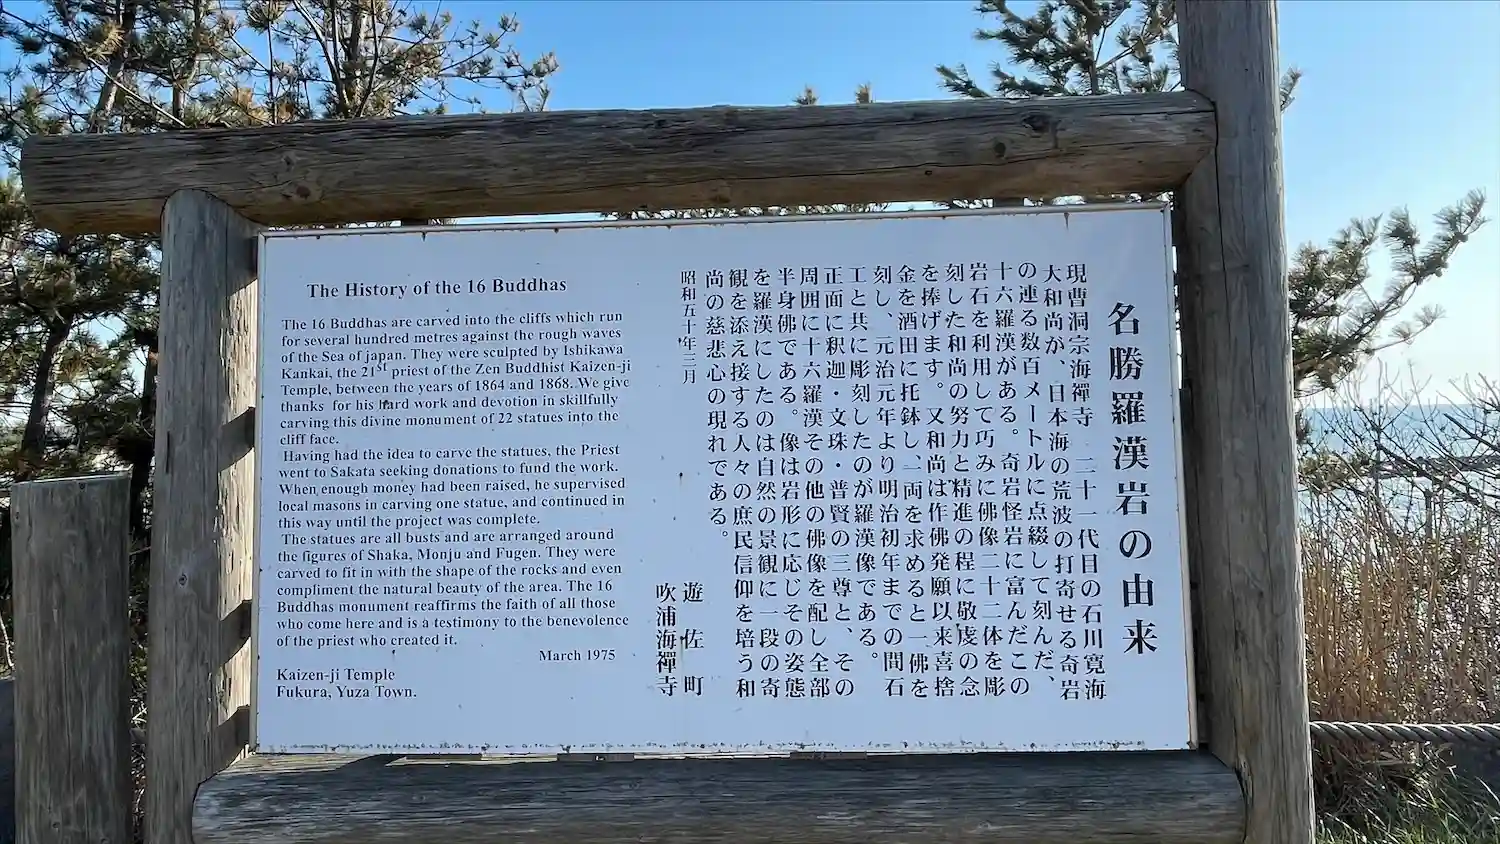 The History of the 16 Buddhas
The 16 Buddhas are carved into the cliffs which run
for several hundred metres against the rough waves
of the Sea of japan. They were sculpted by Ishikawa
Kankai, the 21st priest of the Zen Buddhist Kaizen-ji
Temple, between the years of 1864 and 1868. We give
thanks for his hard work and devotion in skillfully
carving this divine monument of 22 statues into the
cliff face.
Having had the idea to carve the statues, the Priest
went to Sakata seeking donations to fund the work.
When enough money had been raised, he supervised
local masons in carving one statue, and continued in
this way until the project was complete.
The statues are all busts and are arranged around
the figures of Shaka, Monju and Fugen. They were
carved to fit in with the shape of the rocks and even
compliment the natural beauty of the area. The 16
Buddhas monument reaffirms the faith of all those
who come here and is a testimony to the benevolence
of the priest who created it.
March 1975
Kaizen-ji Temple
Fukura, Yuza Town.
名勝羅漢岩の由来
現曹洞宗海禪寺二十一代目の石川寛海
大和尚が、日本海の荒波の打寄せる奇岩
の連る数百メートルに点綴して刻んだ、
十六羅漢がある。奇岩怪岩に富んだこの
岩石を利用して巧みに佛像二十二体を彫
刻した和尚の努力と精進の程に敬虔の念
を捧げます。又和尚は作佛発願以来喜捨
金を酒田に托鉢し、一両を求めると一佛を
刻し、元治元年より明治初年までの間石
工と共に彫刻したのが羅漢像である。
正面に釈迦・文珠・普賢の三尊と、その
周囲に十六羅漢その他の佛像を配し全部
半身佛である。像は岩形に応じその姿態
を羅漢にしたのは自然の景観に一段の奇
観を添え接する人々の庶民信仰を培う和
尚の慈悲心の現れである。
昭和五十年三月
遊佐町
吹浦海禪寺